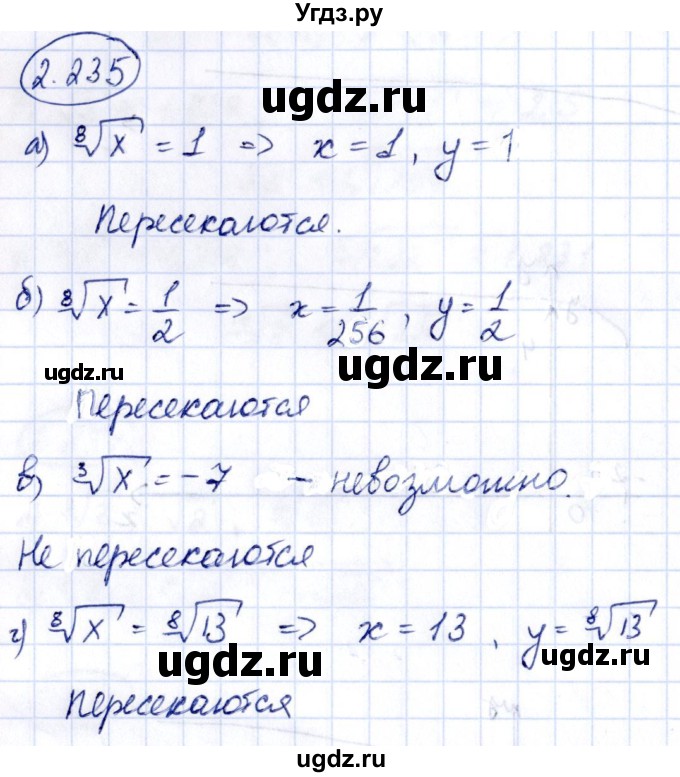 Угдз.ру
2.235
ugdz.ru
а) ⁸√x = 1 => x = 1, y = 1
Пересекаются.
б) ⁸√x = 1/2 => x = 1/256, y = 1/2
ugdz.ru
ugdz.ru
Пересекаются
в) ³√x = -7 - невозможно.
Не пересекаются
г) ⁸√x = ⁸√13 => x = 13, y = ⁸√13
ugdz.ru
ugdz.ru
Пересекаются
ugdz.ru